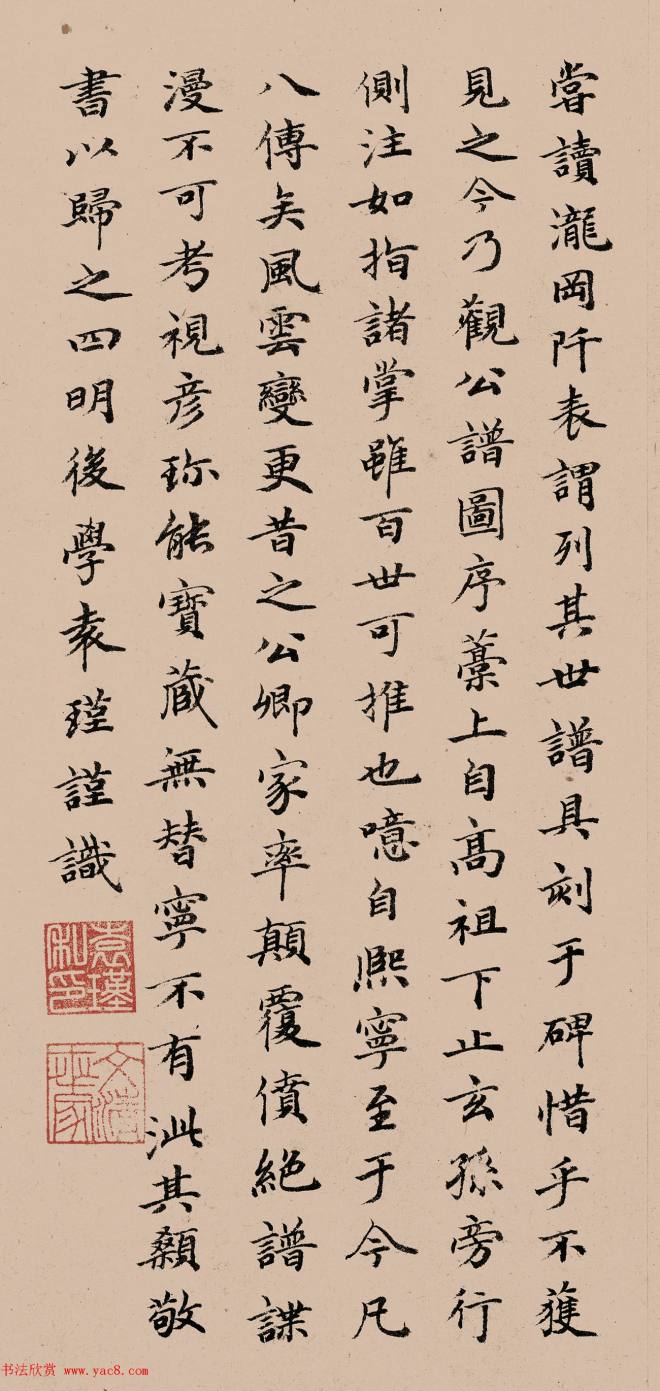 嘗讀瀧岡阡表謂列其世譜具刻于碑惜乎不獲
見之今乃觀公譜圖序藁上自高祖下止玄孫旁行
側注如指諸掌雖百世可推也噫自熙寧至于今凡
八傳矣風雲變更昔之公卿家率顛覆僨絕譜諜
漫不可考視彦珎能寶藏無替寧不有泚其顙敬
書以歸之四明後學袁瑾謹識
袁瑾私印
书法欣赏 www.yac8.com